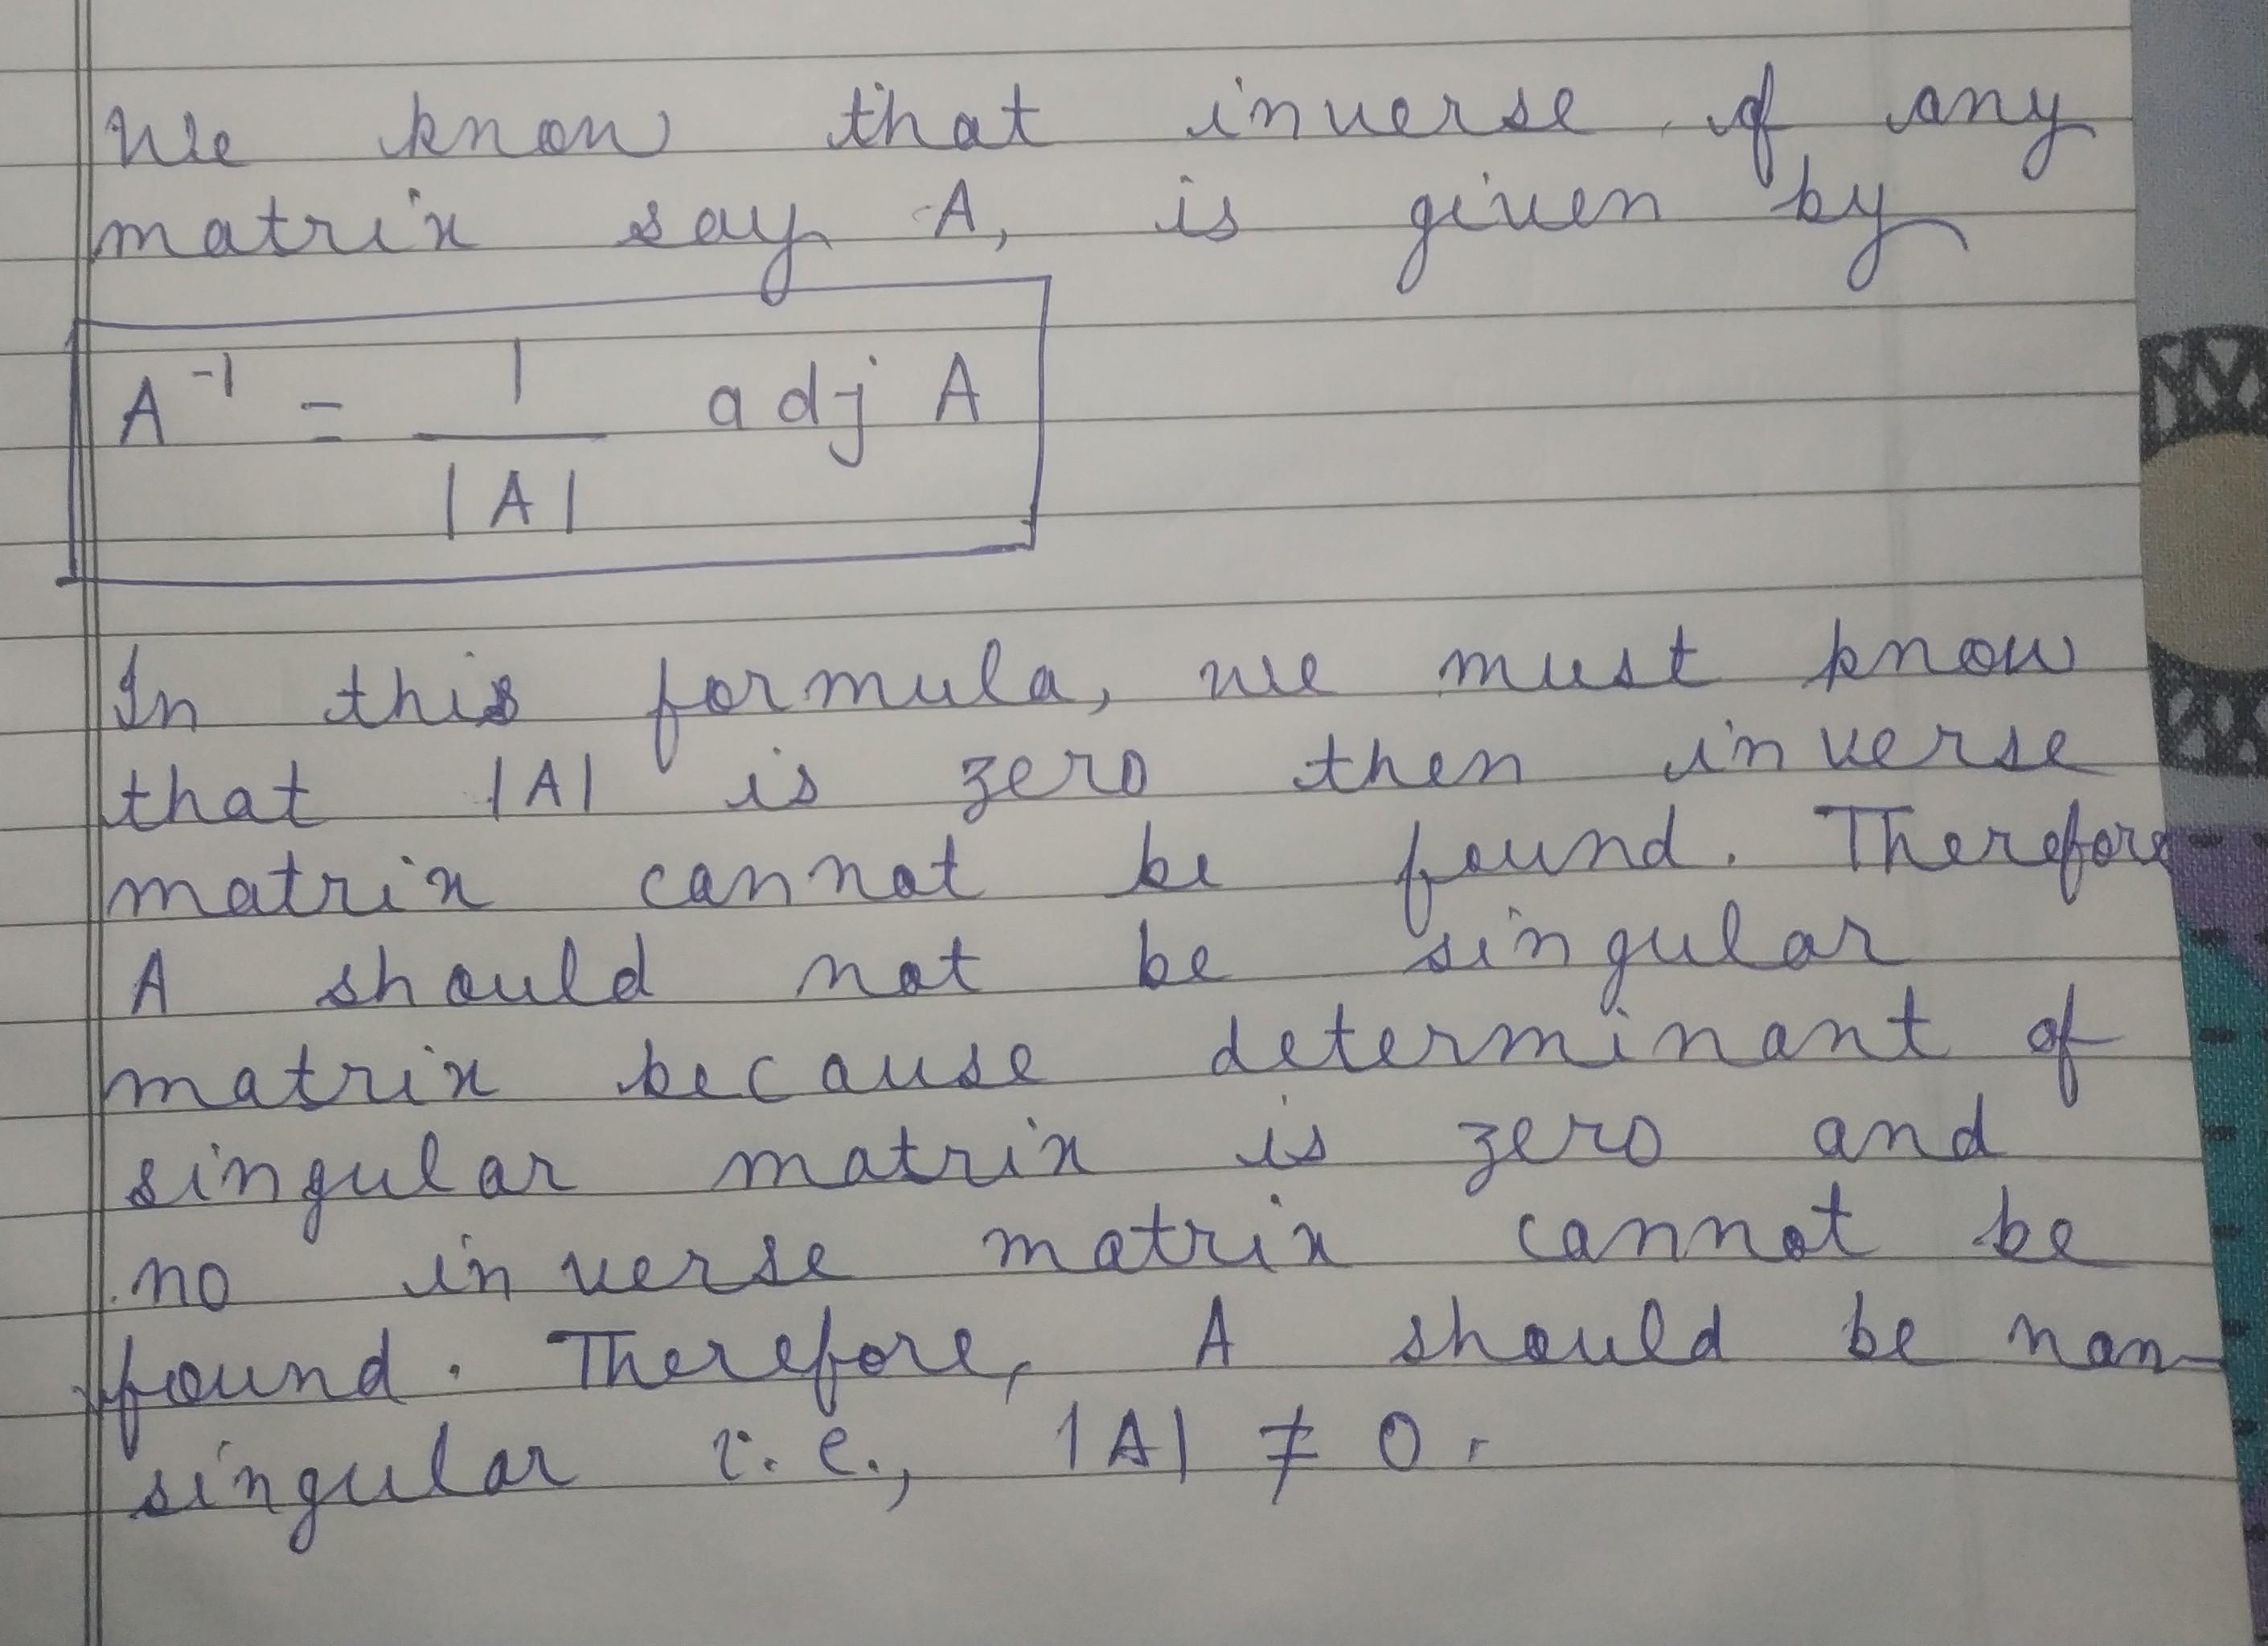 We know that inverse of any
matrix say A, is given by
A⁻¹ = 1/|A| adj A
In this formula, we must know
that |A| is zero then inverse
matrix cannot be found. Therefore
A should not be singular
matrix because determinant of
singular matrix is zero and
no inverse matrix cannot be
found. Therefore, A should be non-
singular i.e., |A| ≠ 0.